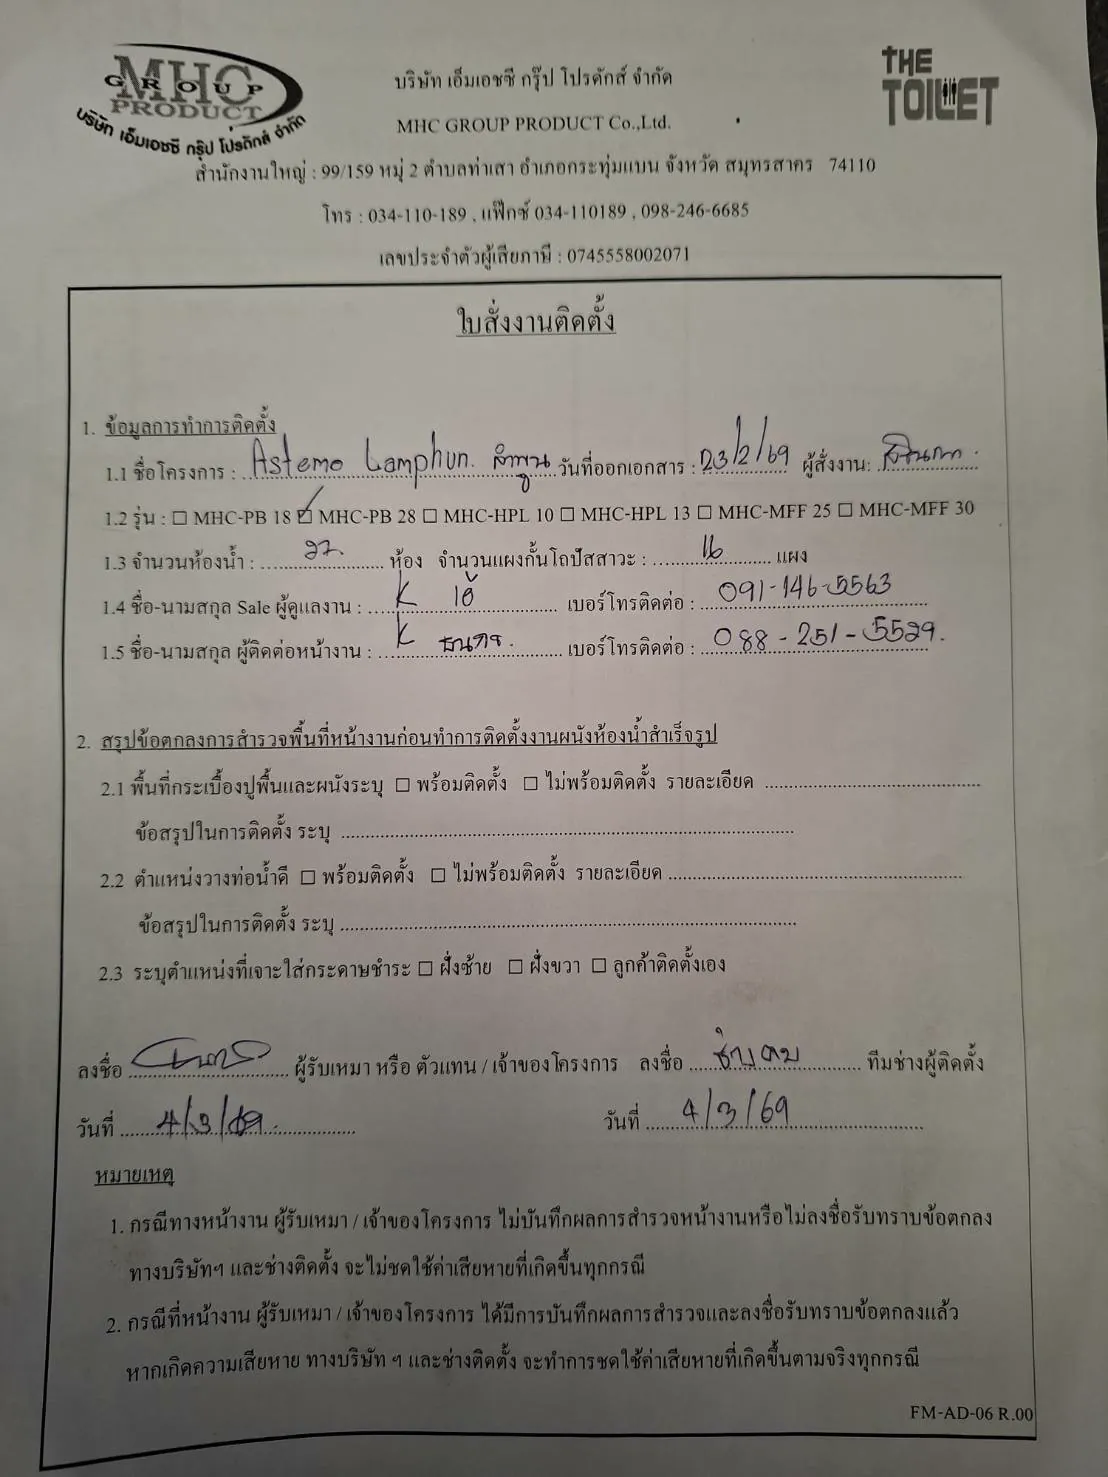 MHC
GROUP
PRODUCT
บริษัท เอ็มเอชซี กรุ๊ป โปรดักส์ จำกัด
THE
TOILET
บริษัท เอ็มเอชซี กรุ๊ป โปรดักส์ จำกัด
MHC GROUP PRODUCT Co.,Ltd.
สำนักงานใหญ่ : 99/159 หมู่ 2 ตำบลท่าเสา อำเภอกระทุ่มแบน จังหวัด สมุทรสาคร 74110
โทร : 034-110-189 , แฟ๊กซ์ 034-110189 , 098-246-6685
เลขประจำตัวผู้เสียภาษี : 0745558002071
ใบสั่งงานติดตั้ง
1. ข้อมูลการทำการติดตั้ง
1.1 ชื่อโครงการ : Astemo Lamphun. ลำพูน วันที่ออกเอกสาร : 23/2/69 ผู้สั่งงาน:
1.2 รุ่น : ☐ MHC-PB 18 ☑ MHC-PB 28 ☐ MHC-HPL 10 ☐ MHC-HPL 13 ☐ MHC-MFF 25 ☐ MHC-MFF 30
1.3 จำนวนห้องน้ำ : 27. ห้อง จำนวนแผงกั้นโถปัสสาวะ : 16 แผง
1.4 ชื่อ-นามสกุล Sale ผู้ดูแลงาน : K เอ้ เบอร์โทรติดต่อ : 091-146-5563
1.5 ชื่อ-นามสกุล ผู้ติดต่อหน้างาน : K ธนกร. เบอร์โทรติดต่อ : 088-251-5529.
2. สรุปข้อตกลงการสำรวจพื้นที่หน้างานก่อนทำการติดตั้งงานผนังห้องน้ำสำเร็จรูป
2.1 พื้นที่กระเบื้องปูพื้นและผนังระบุ ☐ พร้อมติดตั้ง ☐ ไม่พร้อมติดตั้ง รายละเอียด
ข้อสรุปในการติดตั้ง ระบุ
2.2 ตำแหน่งวางท่อน้ำดี ☐ พร้อมติดตั้ง ☐ ไม่พร้อมติดตั้ง รายละเอียด
ข้อสรุปในการติดตั้ง ระบุ
2.3 ระบุตำแหน่งที่เจาะใส่กระดาษชำระ ☐ ฝั่งซ้าย ☐ ฝั่งขวา ☐ ลูกค้าติดตั้งเอง
ลงชื่อ ผู้รับเหมา หรือ ตัวแทน / เจ้าของโครงการ ลงชื่อ ช่างคม ทีมช่างผู้ติดตั้ง
วันที่ 4/3/69. วันที่ 4/3/69
หมายเหตุ
1. กรณีทางหน้างาน ผู้รับเหมา / เจ้าของโครงการ ไม่บันทึกผลการสำรวจหน้างานหรือไม่ลงชื่อรับทราบข้อตกลง
ทางบริษัทฯ และช่างติดตั้ง จะไม่ชดใช้ค่าเสียหายที่เกิดขึ้นทุกกรณี
2. กรณีที่หน้างาน ผู้รับเหมา / เจ้าของโครงการ ได้มีการบันทึกผลการสำรวจและลงชื่อรับทราบข้อตกลงแล้ว
หากเกิดความเสียหาย ทางบริษัท ฯ และช่างติดตั้ง จะทำการชดใช้ค่าเสียหายที่เกิดขึ้นตามจริงทุกกรณี
FM-AD-06 R.00